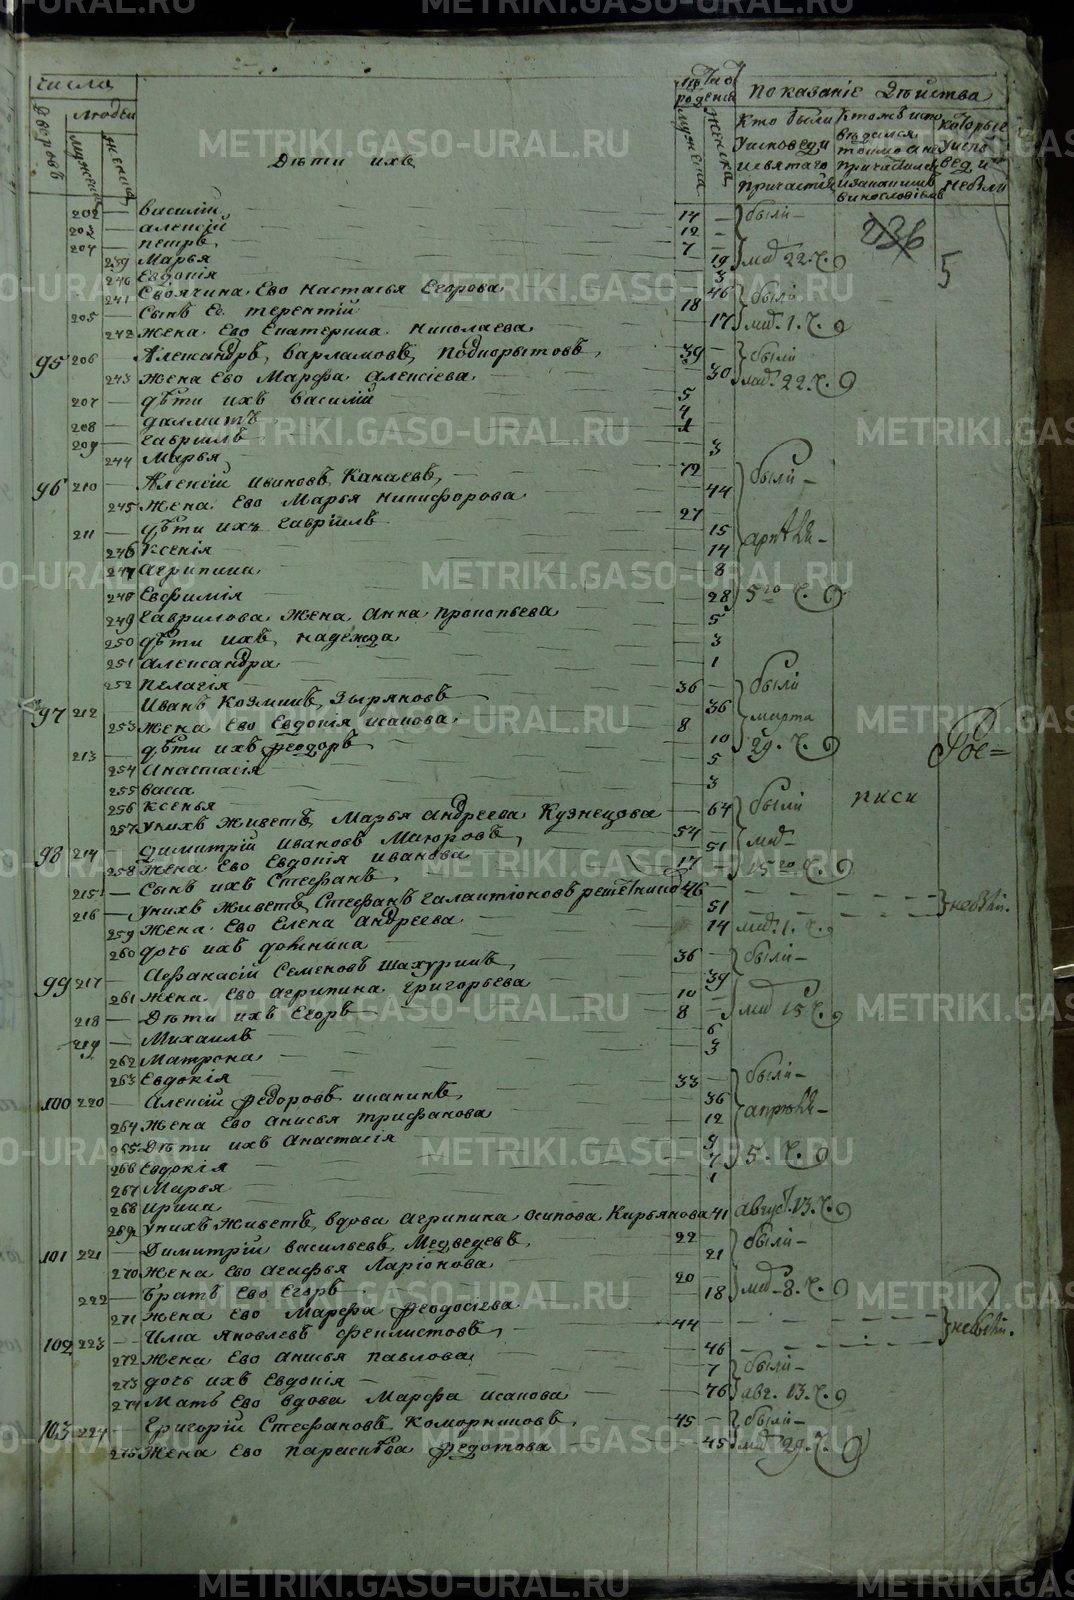 числа
дворовъ
людей
мужеска
женска
Дѣти ихъ
мужеска
женска
показаніе Действа
Кто были
которые
небыли
202 — василій — 14 —
203 — алексій — 12 —
204 — петръ — 7 —
239 Марья — 19
240 Евдокія — 3
241 Своячина Ево настасья Егорова — 46
205 — Сынъ Ея терентій — 18
242 Жена Ево Екатерина николаева — 17
95 206 — Александръ варламовъ подкорытовъ — 39 —
243 Жена Ево Марфа алексіева — 30
207 — дѣти ихъ василій — 5
208 — далматъ — 4
209 — гавріилъ — 1
244 Марья — 3
96 210 — Алексій ивановъ Канаевъ — 72 —
245 Жена Ево Марья никифорова — 44
211 — дѣти ихъ гавріилъ — 27
246 Ксенія — 15
247 агрипина — 14
248 Евфимія — 8
249 гаврилова Жена анна прокопьева — 28
250 дѣти ихъ надежда — 5
251 александра — 3
252 пелагія — 1
97 212 — Иванъ Козминъ Зыряновъ — 36 —
253 Жена Ево Евдокія исакова — 36
213 — дѣти ихъ феодоръ — 8
254 Анастасія — 10
255 васса — 5
256 Ксенья — 3
257 унихъ Живетъ Марья андреева Кузнецова — 64
98 214 — Димитрій ивановъ Маюровъ — 54 —
258 Жена Ево Евдокія иванова — 51
215 — Сынъ ихъ Стефанъ — 17
216 — унихъ Живетъ Стефанъ галактіоновъ решетниковъ 46
259 Жена Ево Елена андреева — 51
260 дочь ихъ домника — 14
99 217 — Афанасій Семеновъ Шахуринъ — 36 —
261 Жена Ево агрипина григорьева — 39
218 — Дѣти ихъ Егоръ — 10
219 — Михаилъ — 8
262 Матрона — 6
263 Евдокія — 3
100 220 — Алексій федоровъ иканинъ — 33 —
264 Жена Ево анисья трифанова — 36
265 Дѣти ихъ анастасія — 12
266 Евдокія — 9
267 Марья — 7
268 ирина — 1
269 унихъ Живетъ вдова агрипина осипова Кирьянова 41
101 221 — Димитрій васильевъ Медведевъ — 22 —
270 Жена Ево агафья Ларіонова — 21
222 — братъ Ево Егоръ — 20
271 Жена Ево Марфа феодосіева — 18
102 223 — Илиа яковлевъ феклистовъ — 44 —
272 Жена Ево анисья павлова — 46
273 дочь ихъ Евдокія — 7
274 Мать Ево вдова Марфа исакова — 76
103 224 — Григорій Стефановъ Коморниковъ — 45 —
275 Жена Ево параскѣва федотова — 45
были
236
5
май 22. ч.
были
май. 1. ч.
были
май 22. ч.
были
апрѣля
5го ч.
были
марта
29. ч.
Рос=
писи
были
май
15го ч.
небыли.
май. 1. ч.
были
май 15 ч.
были
апрѣля
5. ч.
август. 13. ч.
были
май 8. ч.
небыли.
были
авг. 13. ч.
были
май 29. ч.
METRIKI.GASO-URAL.RU